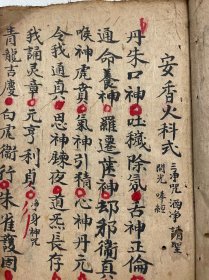 安香火科式 三净咒 洒净 請聖
開光
丹朱口神吐穢除氛舌神正倫
通命養神羅邊齒神却邪衛真
喉神虎賁氣神引精心神丹元
令我通真思神錬夜道炁長存
我誦灵章元亨利貞 净身神咒
青龍吉慶白虎衛行朱雀護